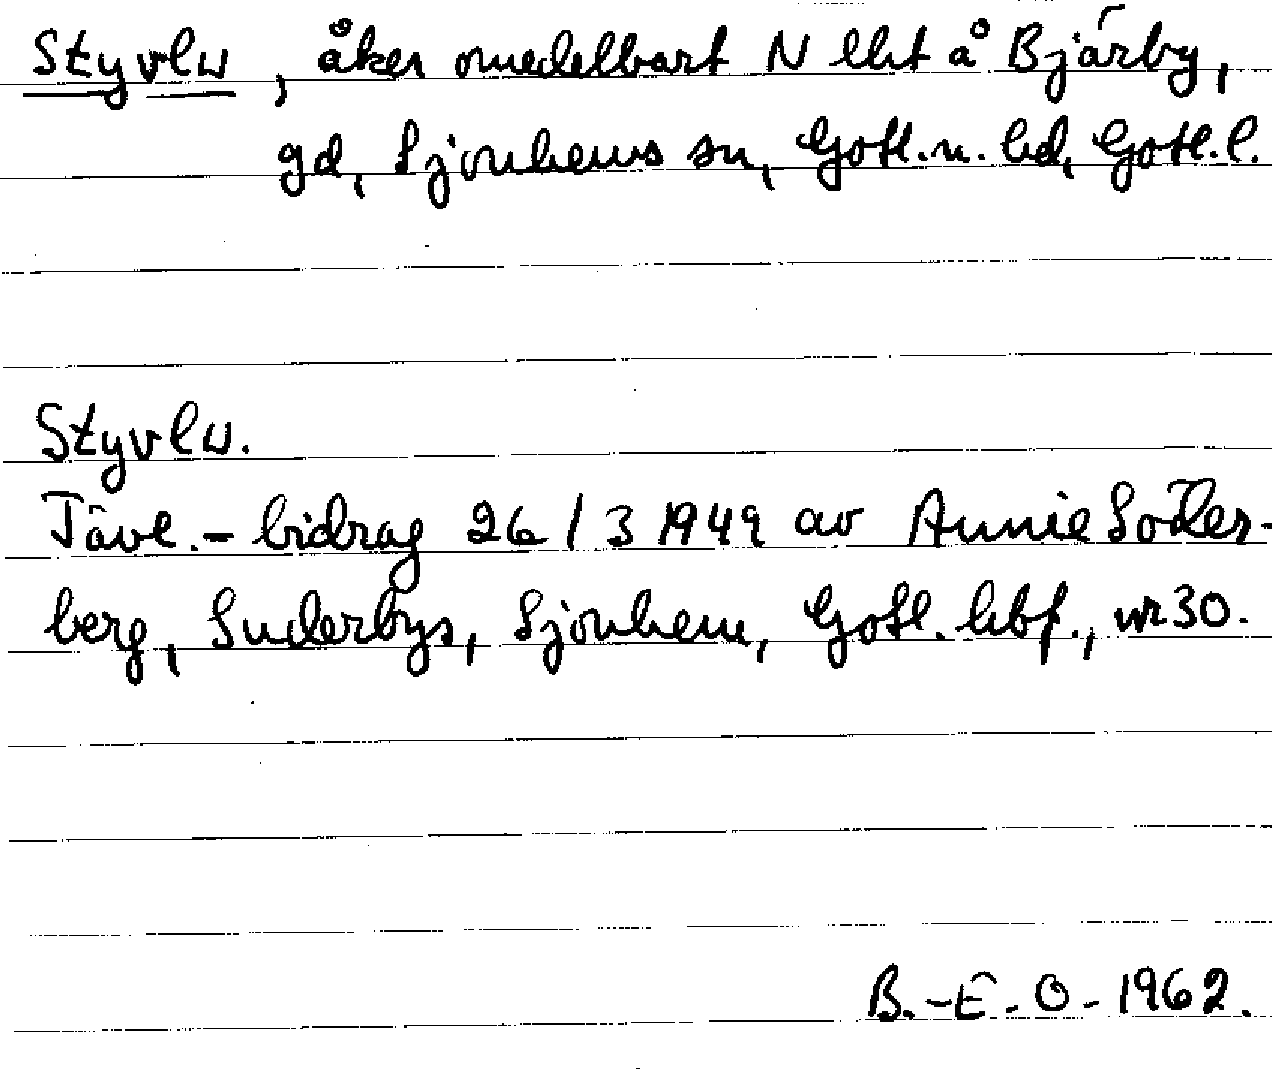 Styvlu, åker omedelbart N lht å Bjärby,
gd, Sjonhems sn, Gotl. n. hd, Gotl. l.
Styvlu.
Tävl.-bidrag 26/3 1949 av Annie Söder-
berg, Suderbys, Sjonhem, Gotl. hbf., nr 30.
B.-E. O- 1962.